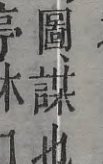 圖謀也
亭休